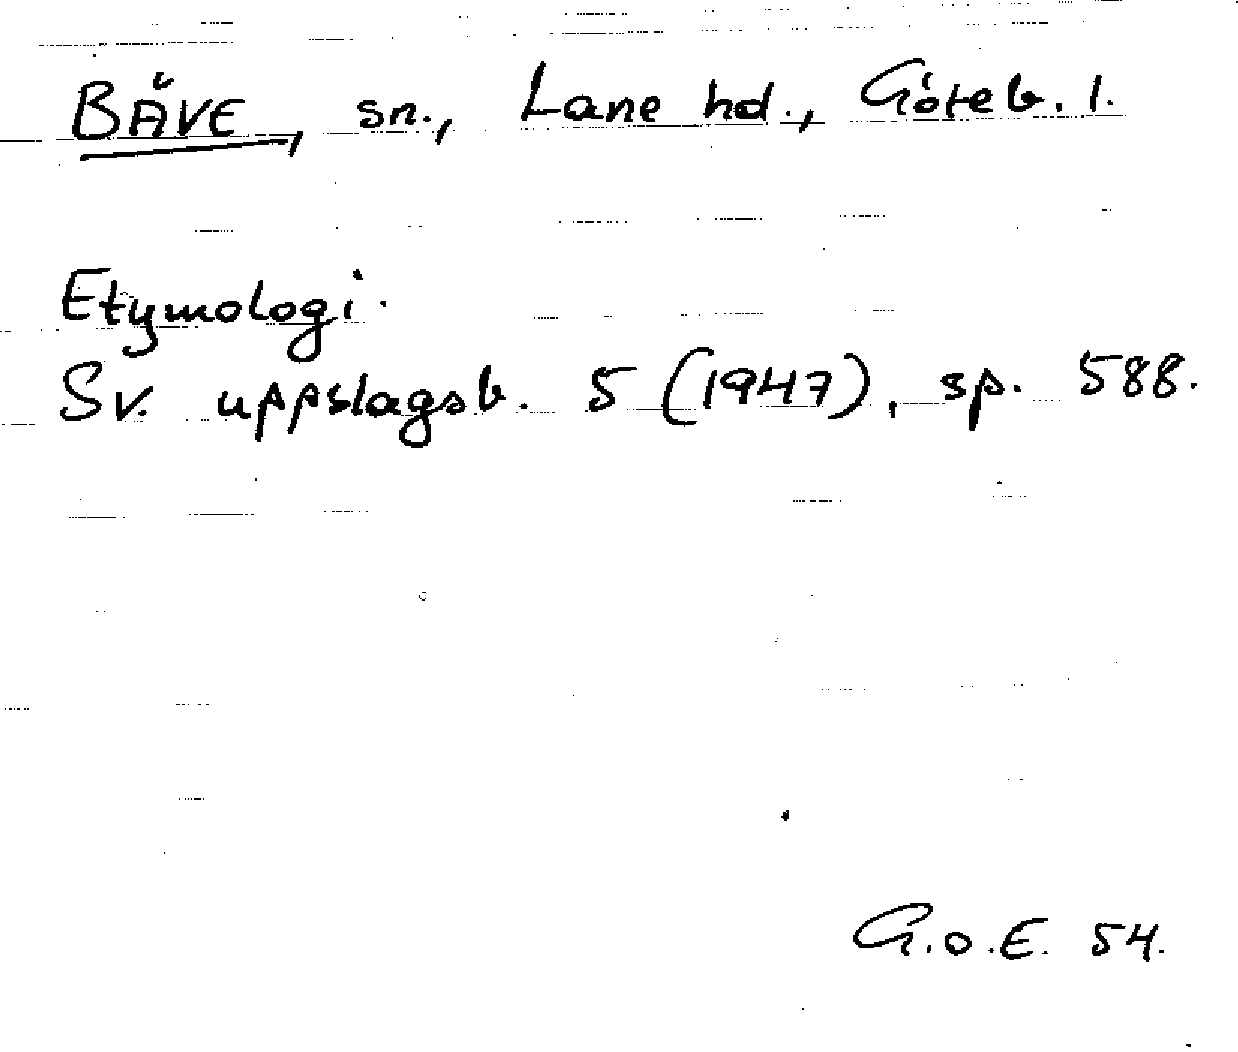 BÄVE, sn., Lane hd., Göteb. l.
Etymologi.
Sv. uppslagsb. 5 (1947), sp. 588.
G.O.E. 54.